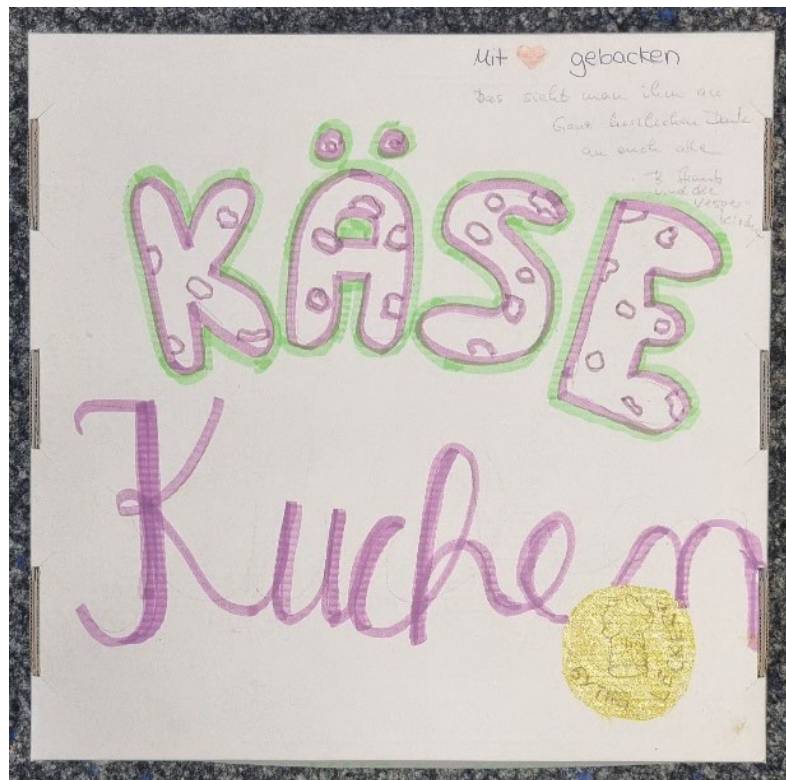 Mit gebacken
Das sieht man ihm an
Ganz herzlichen Dank
an euch alle
und die
Vesper-
KÄSE
Kuchen